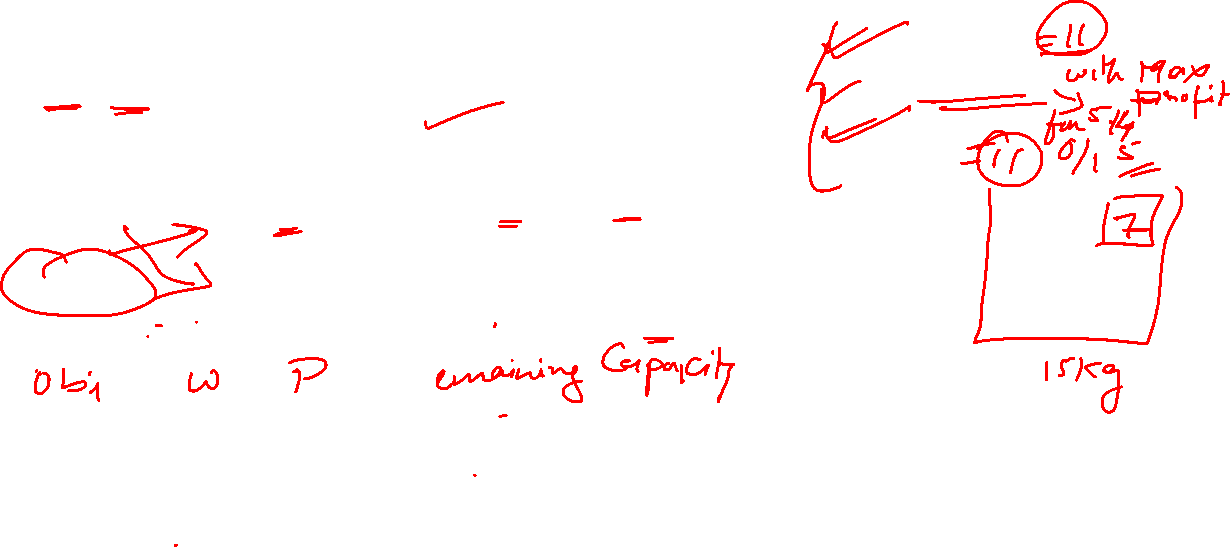 = 11
with Max
profit
for 5 kg
= 11 0/1 5
7
Obj W P emaining Capacity
15kg